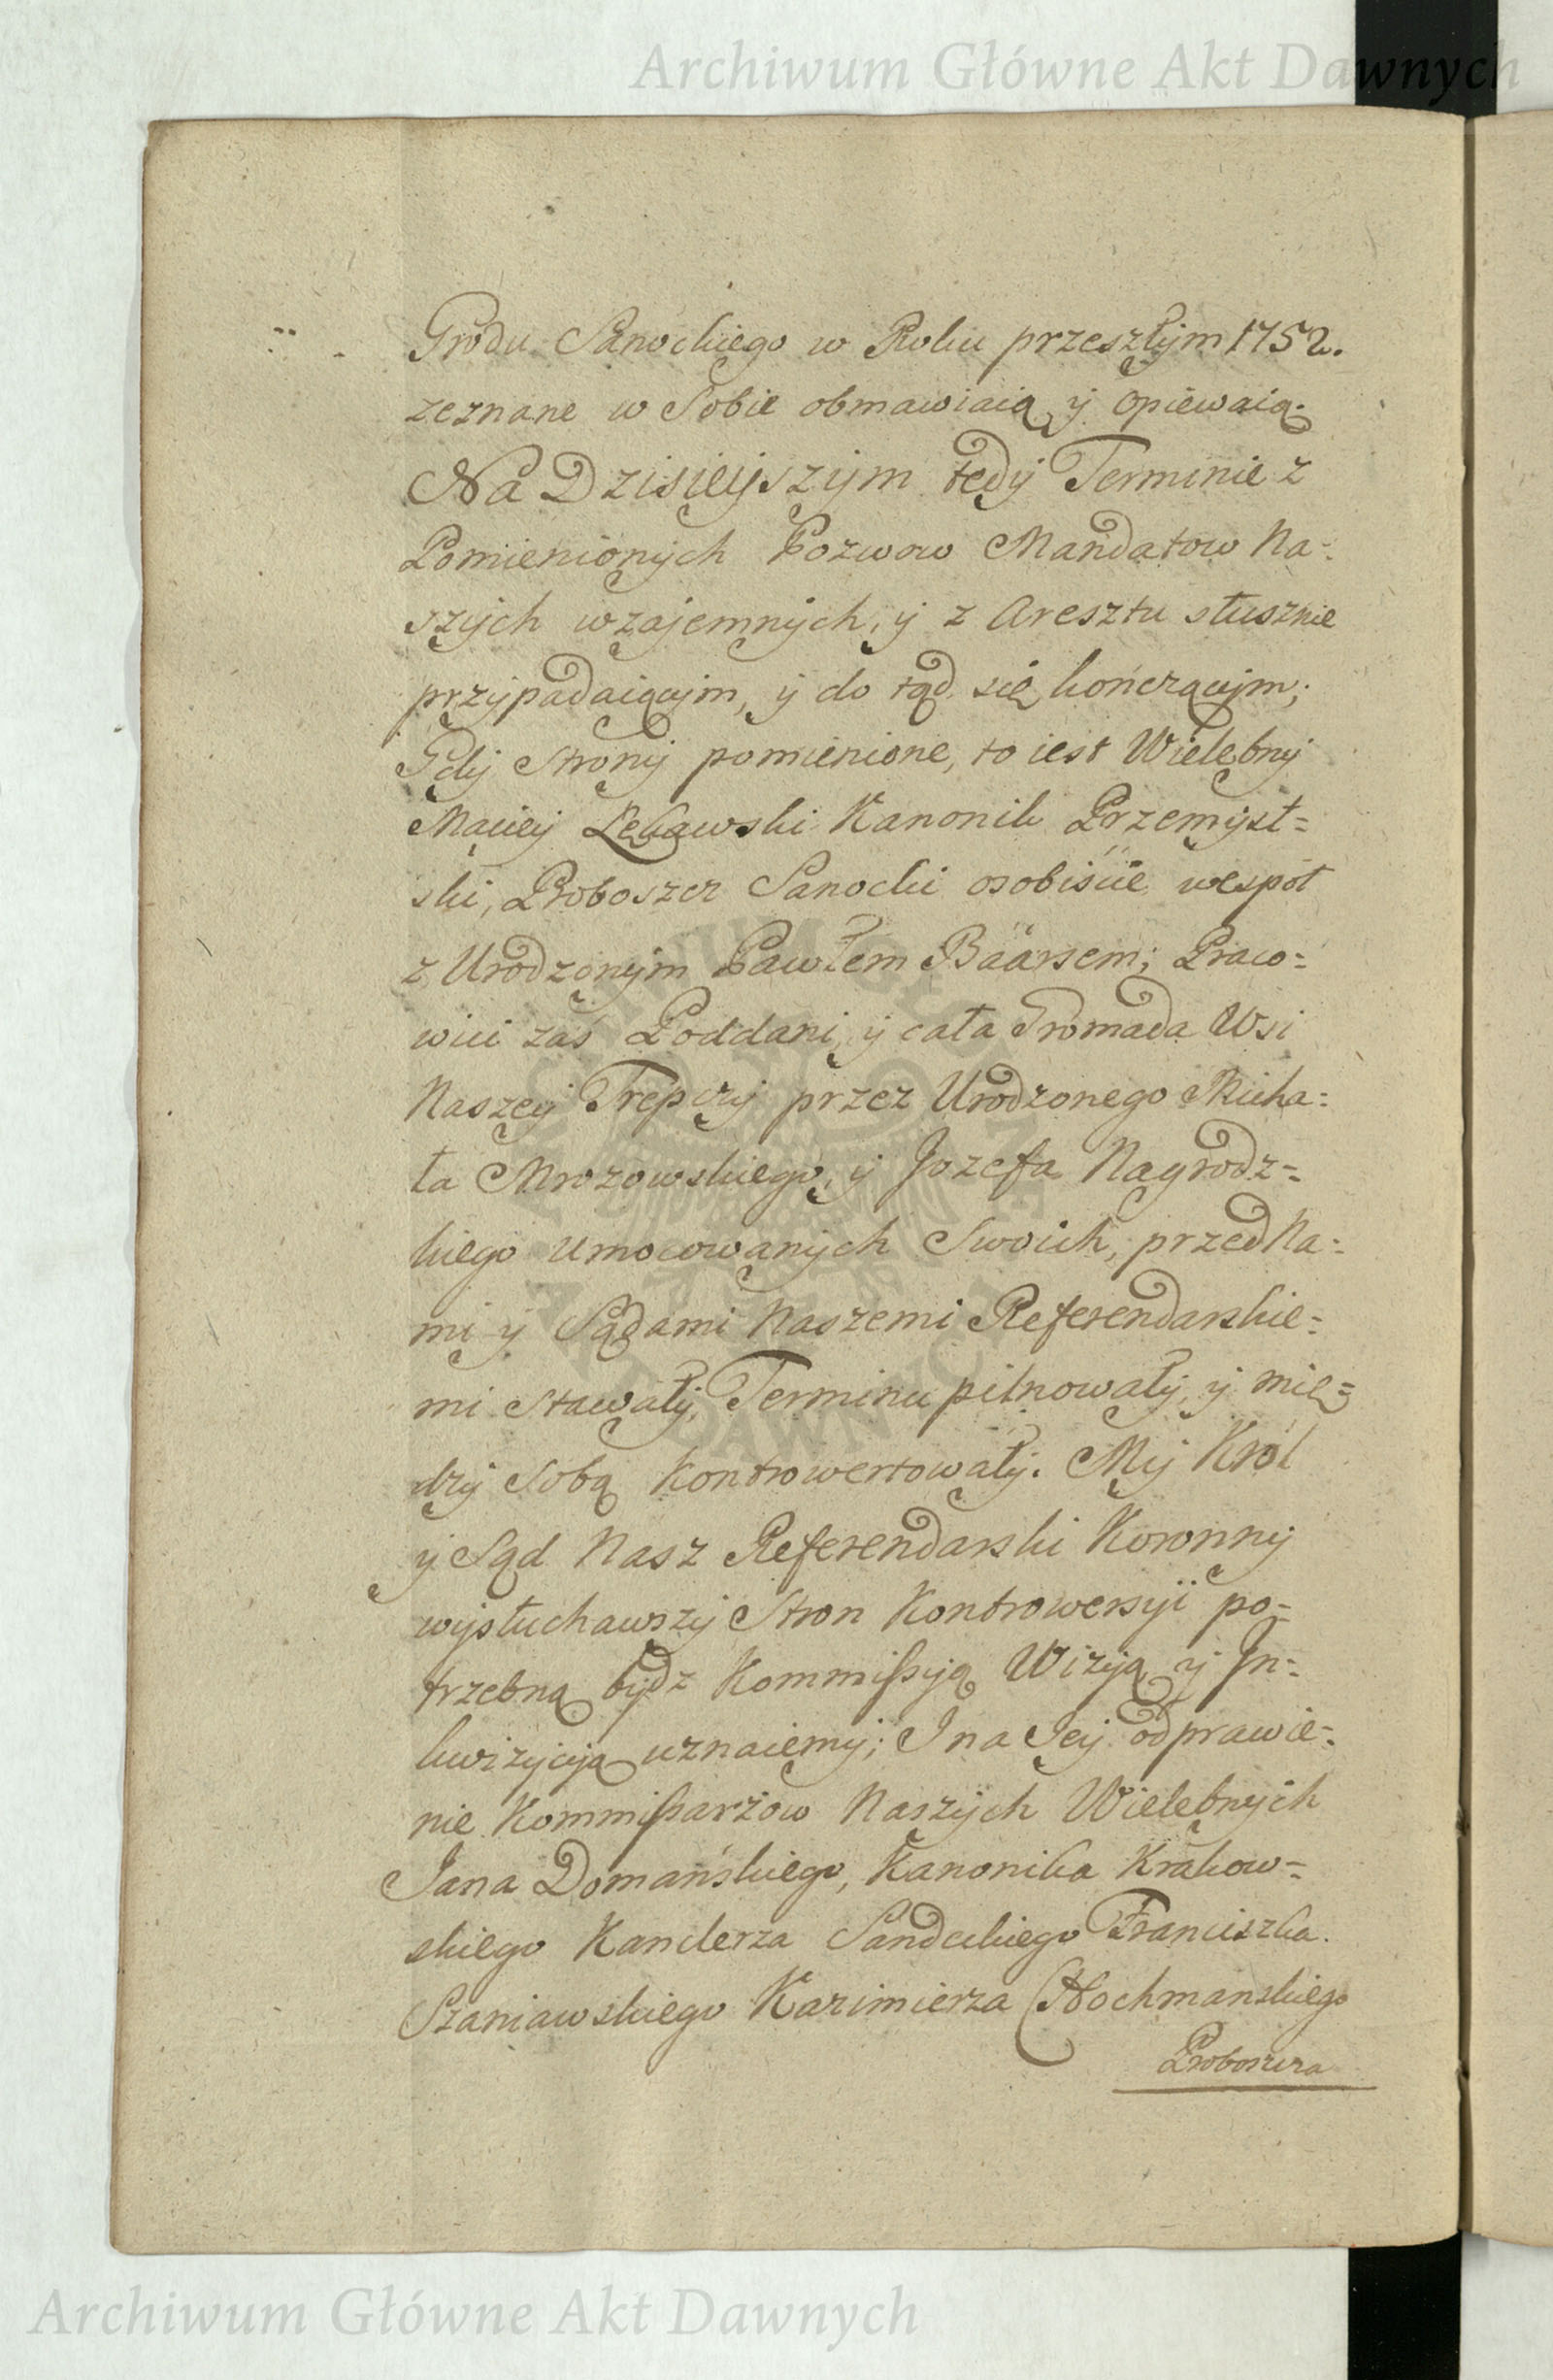 Archiwum Główne Akt Dawnych
Grodu Sanockiego w Roku przeszłym 1752.
zeznane w Sobie obmawiaią y opiewaią.
Na Dzisieyszym tedy Terminie z
Pomienionych Pozwow Mandatow Na=
szych wzajemnych, y z Aresztu słusznie
przypadaiącym, y do tąd się kończącym;
Gdy Strony pomienione, to iest Wielebny
Maciey Kanonik Przemyśl=
ski, Proboszcz Sanocki osobiście wespół
z Urodzonym Pawłem Bäärsem; Praco=
wici zaś Poddani, y cała Gromada Wsi
Naszey Trepczy przez Urodzonego Micha=
ła Mrozowskiego, y Jozefa Nagrodz=
kiego umocowanych Swoich, przed Na=
mi y Sądami Naszemi Referendarskie=
mi Stawały, Terminu pilnowały, y mię=
dzy Sobą Kontrowertowały. My Król
y Sąd Nasz Referendarski Koronny
wysłuchawszy Stron Kontrowersyi po=
trzebną bydz Kommissyą Wizyą y In=
kwizycyją uznaiemy; I na Jey odprawie=
nie Kommissarzow Naszych Wielebnych
Jana Domańskiego, Kanonika Krakow=
skiego Kanclerza Sandeckiego Franciszka
Szaniawskiego Kazimierza Hochmanskiego
Proboszcza
ARCHIWUM GŁÓWNE
AKT DAWNYCH
Archiwum Główne Akt Dawnych